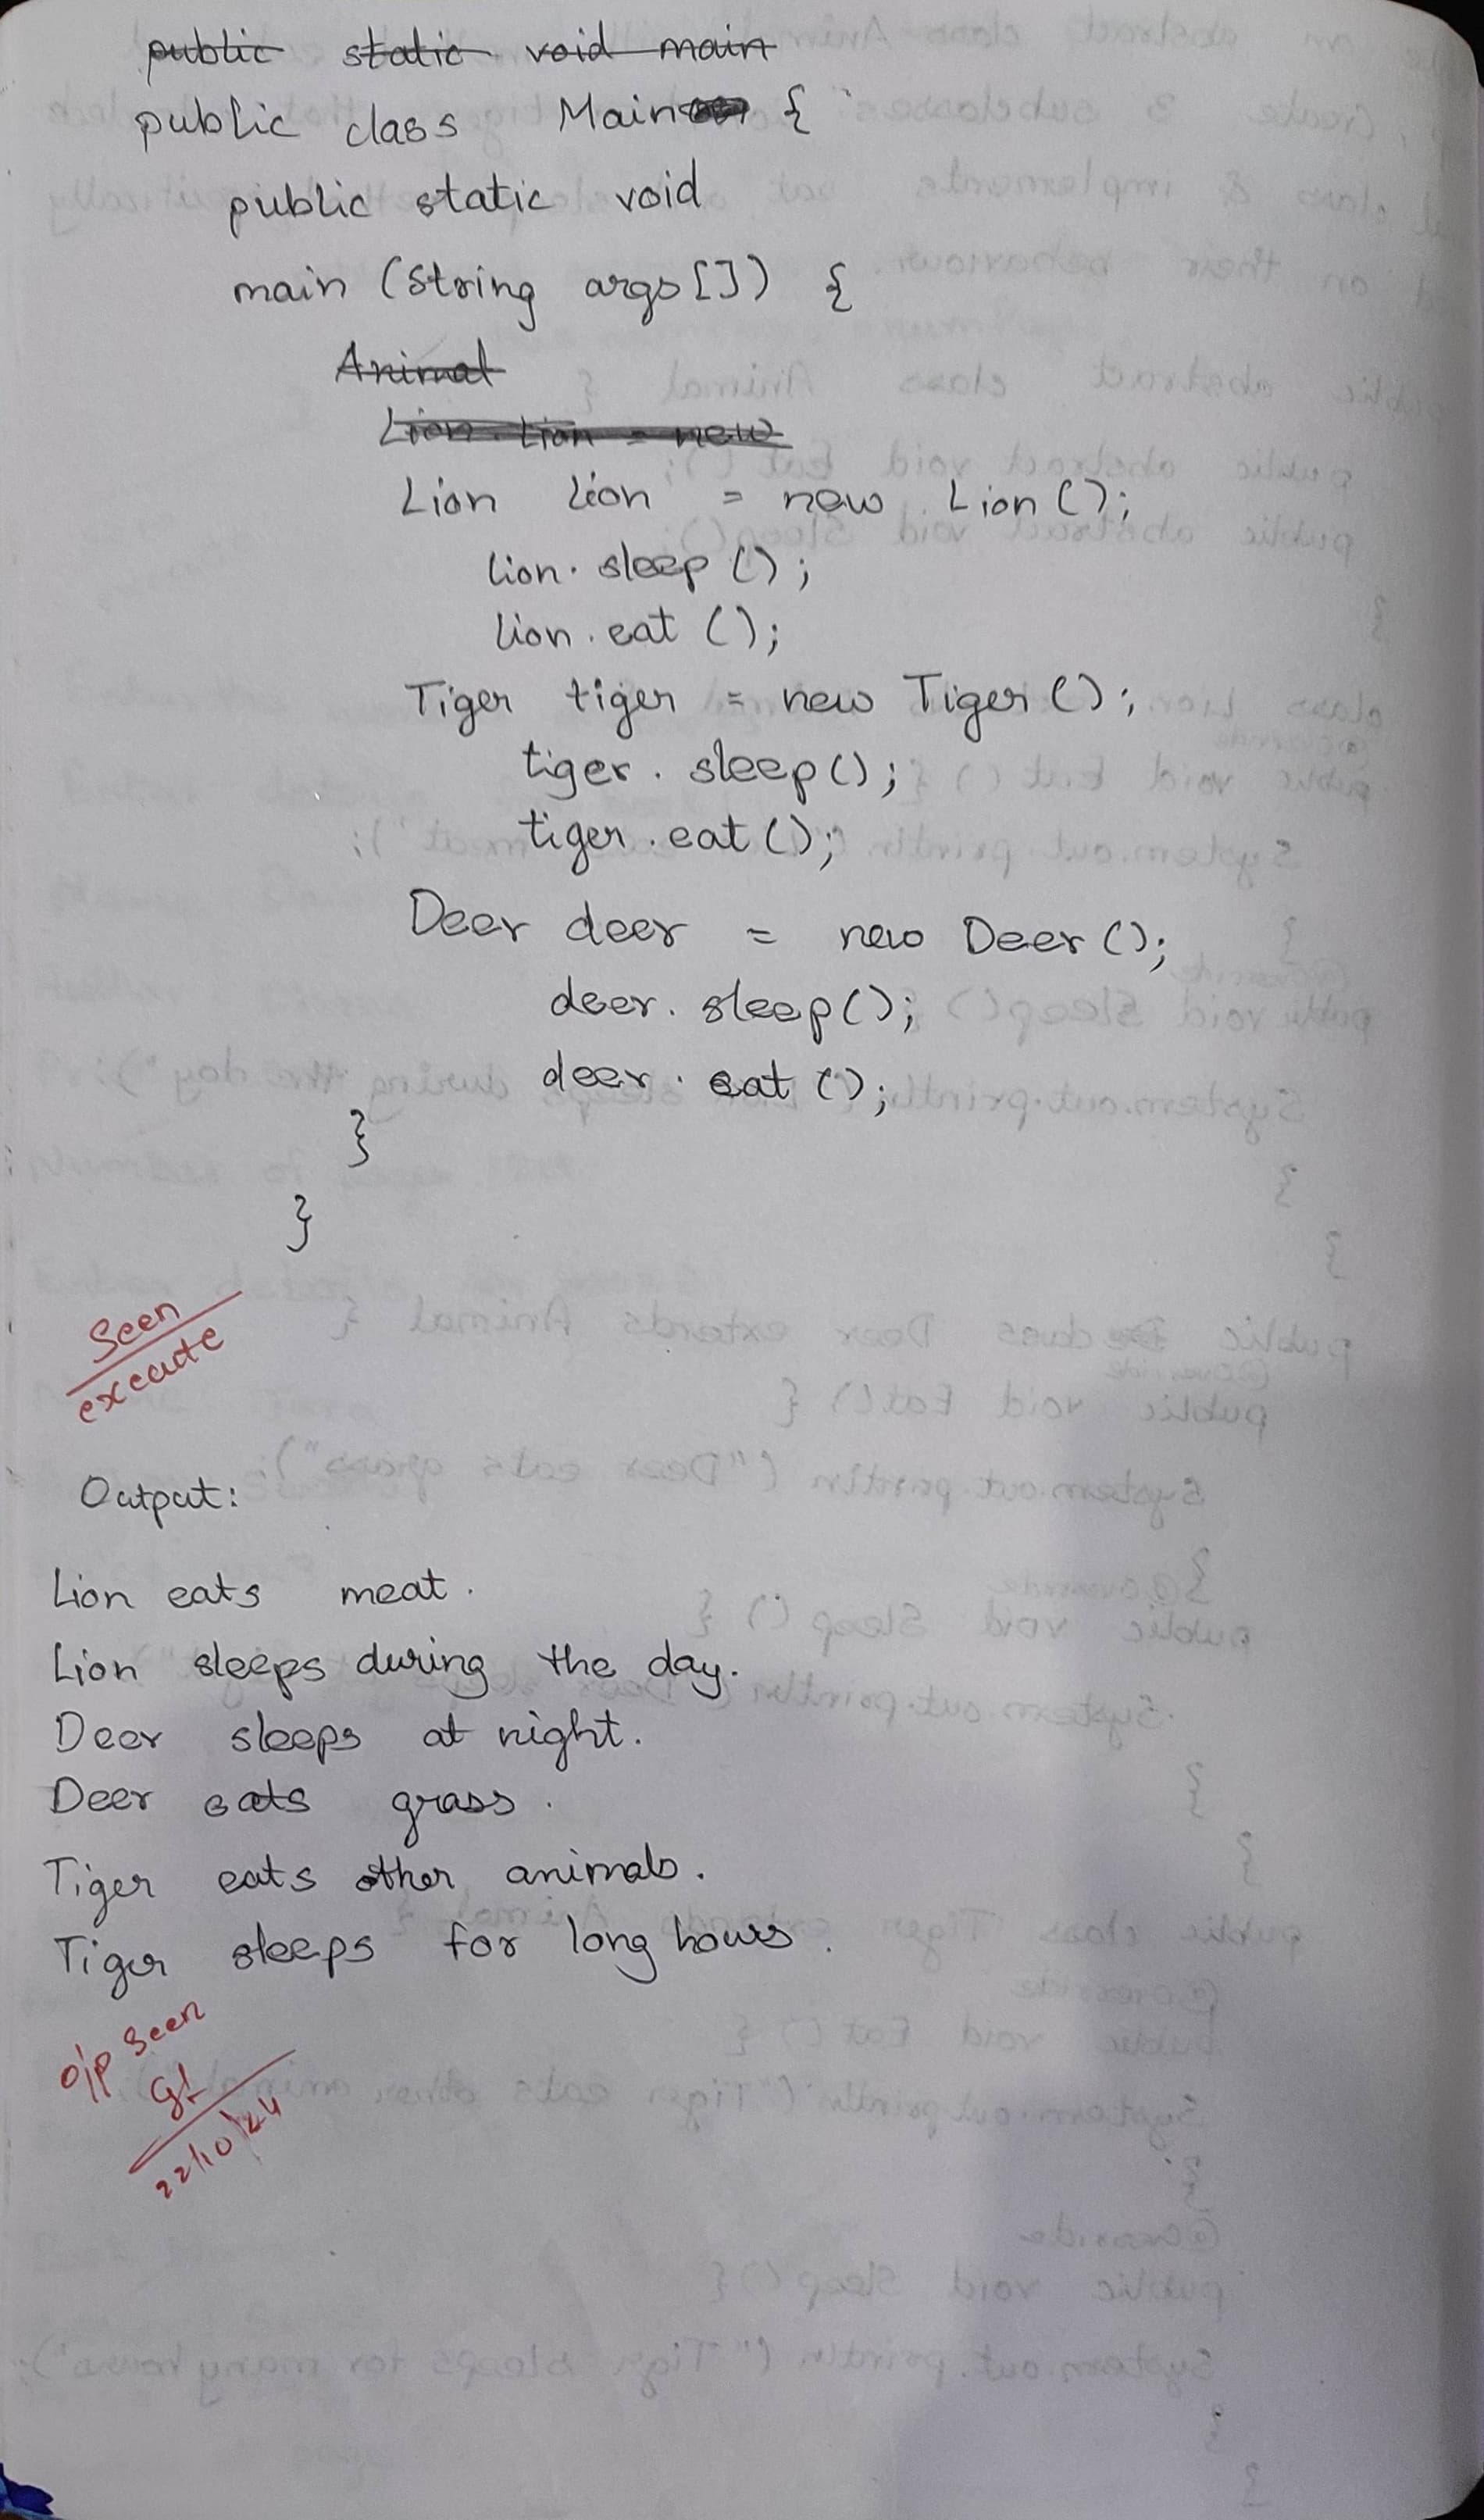 public static void main
public class Main {
public static void
main (String args[]) {
Animal
Lion Lion = new
Lion lion = new Lion ();
lion. sleep ();
lion. eat ();
Tiger tiger = new Tiger ();
tiger. sleep();
tiger. eat ();
Deer deer = new Deer ();
deer. sleep();
deer. eat ();
}
}
Seen
execute
Output:
Lion eats meat.
Lion sleeps during the day.
Deer sleeps at night.
Deer eats grass.
Tiger eats other animals.
Tiger sleeps for long hours.
O/P Seen
22/10/24